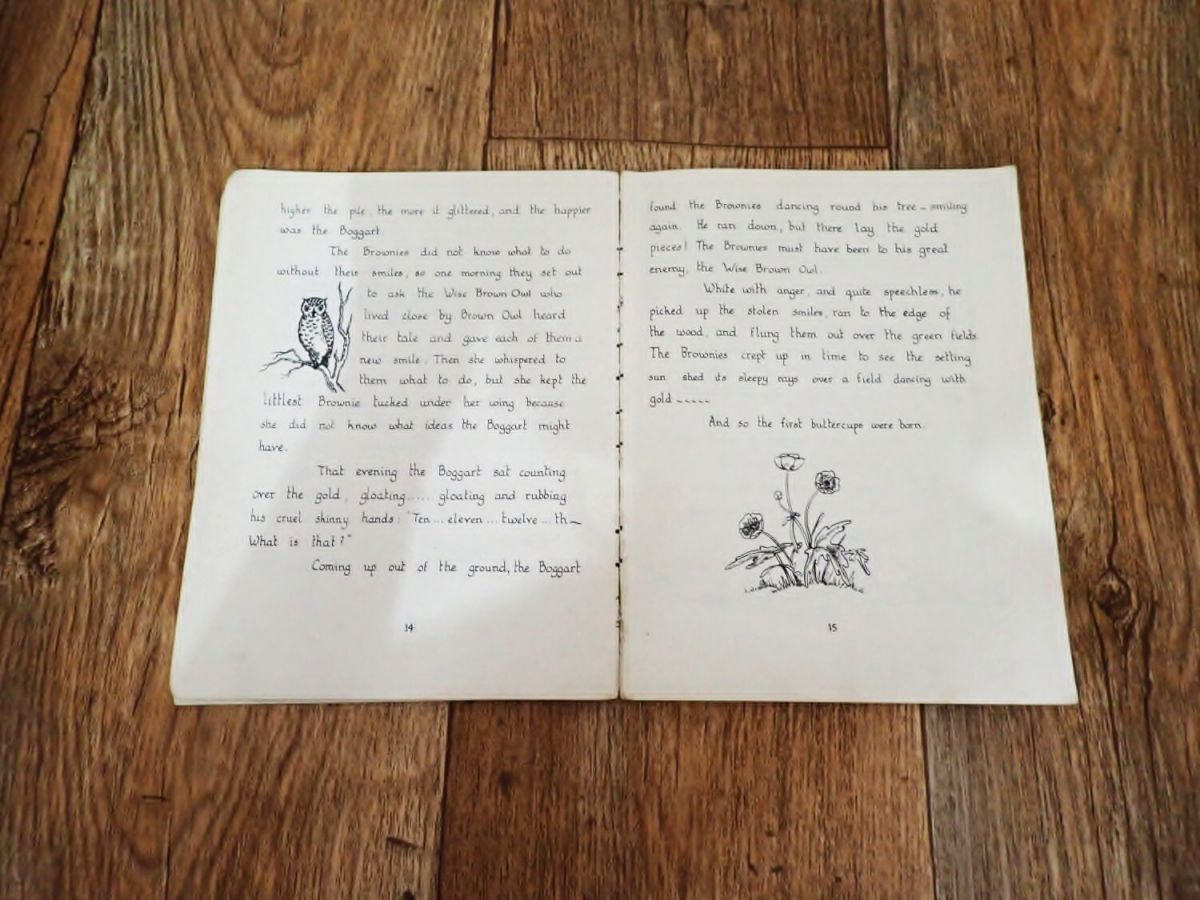 higher the pile, the more it glittered, and the happier
was the Boggart
The Brownies did not know what to do
without their smiles, so one morning they set out
to ask the Wise Brown Owl who
lived close by Brown Owl heard
their tale and gave each of them a
new smile. Then she whispered to
them what to do, but she kept the
littlest Brownie tucked under her wing because
she did not know what ideas the Boggart might
have.
That evening the Boggart sat counting
over the gold, gloating...... gloating and rubbing
his cruel skinny hands: "Ten ... eleven ... twelve ... th—
What is that?"
Coming up out of the ground, the Boggart
14
found the Brownies dancing round his tree - smiling
again. He ran down, but there lay the gold
pieces! The Brownies must have been to his great
enemy, the Wise Brown Owl.
White with anger, and quite speechless, he
picked up the stolen smiles, ran to the edge of
the wood, and flung them out over the green fields
The Brownies crept up in time to see the setting
sun shed its sleepy rays over a field dancing with
gold -----
And so the first buttercups were born.
15